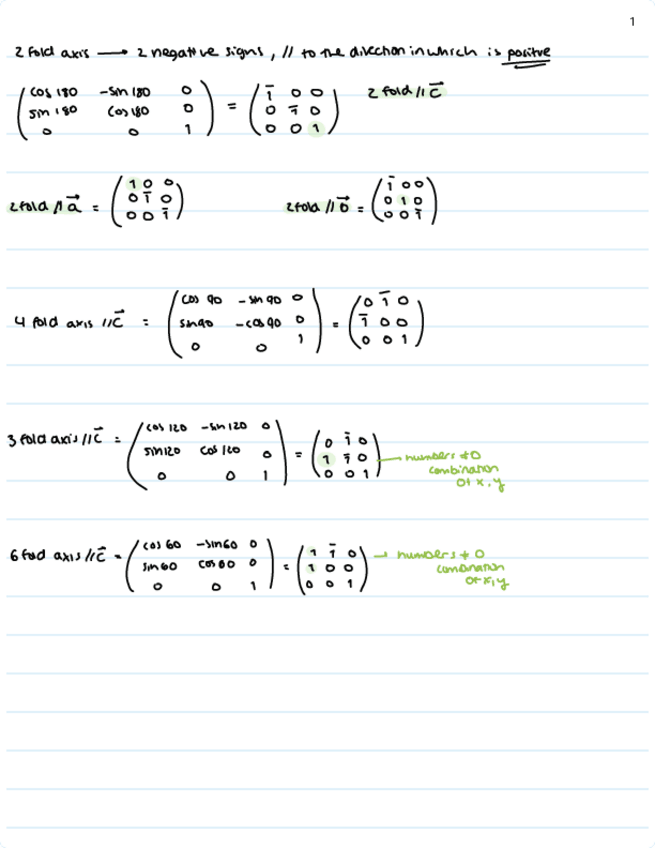 1
2 fold axis → 2 negative signs, // to the direction in which is positive
( cos 180 -sin 180 0 ; sin 180 cos 180 0 ; 0 0 1 ) = ( 1̄ 0 0 ; 0 1̄ 0 ; 0 0 1 ) 2 fold // c⃗
2 fold // a⃗ = ( 1 0 0 ; 0 1̄ 0 ; 0 0 1̄ ) 2 fold // b⃗ = ( 1̄ 0 0 ; 0 1 0 ; 0 0 1̄ )
4 fold axis // c⃗ = ( cos 90 -sin 90 0 ; sin 90 -cos 90 0 ; 0 0 1 ) = ( 0 1̄ 0 ; 1̄ 0 0 ; 0 0 1 )
3 fold axis // c⃗ = ( cos 120 -sin 120 0 ; sin 120 cos 120 0 ; 0 0 1 ) = ( 0 1̄ 0 ; 1 1̄ 0 ; 0 0 1 ) → numbers ≠ 0
combination
of x, y
6 fold axis // c⃗ = ( cos 60 -sin 60 0 ; sin 60 cos 60 0 ; 0 0 1 ) = ( 1 1̄ 0 ; 1 0 0 ; 0 0 1 ) → numbers ≠ 0
combination
of x, y